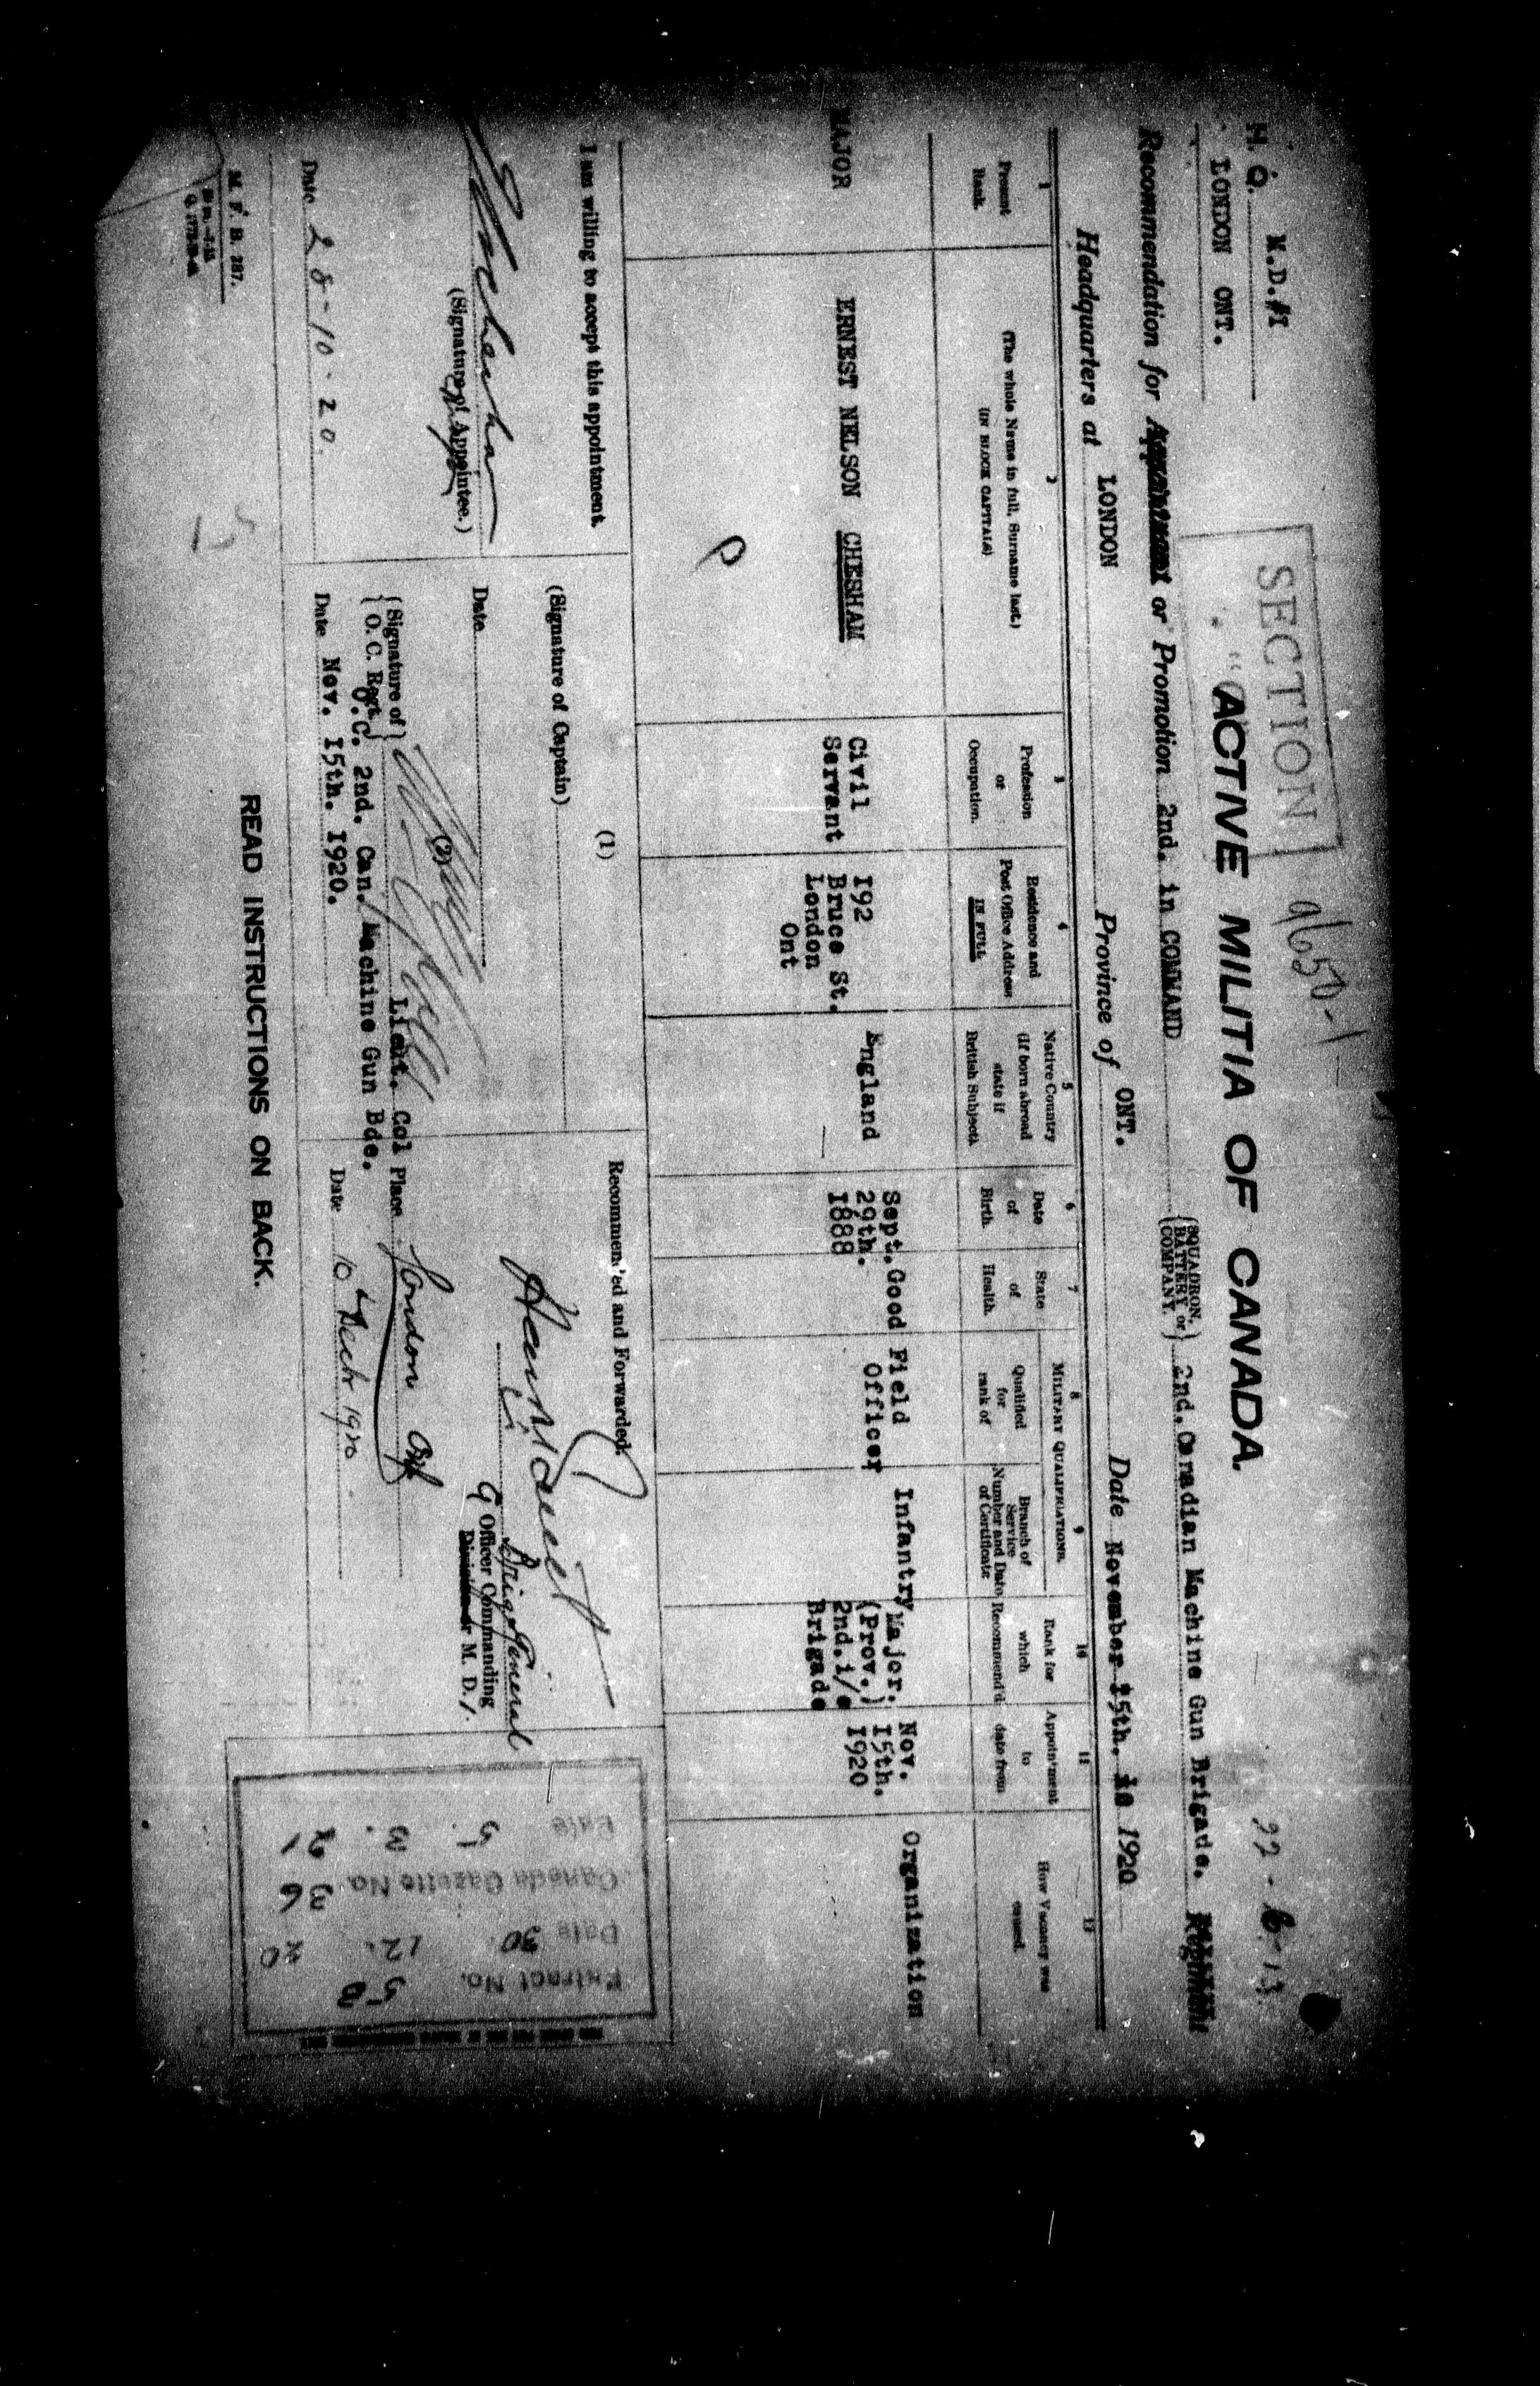 H. Q. M.D.#I
LONDON ONT.
SECTION 9650-1
22-6-13
ACTIVE MILITIA OF CANADA.
Recommendation for Appointment or Promotion 2nd. in COMMAND {SQUADRON, BATTERY or COMPANY.} 2nd. Canadian Machine Gun Brigade. Regiment
Headquarters at LONDON Province of ONT. Date November 15th. 1920
1 Present Rank.
2 (The whole Name in full, Surname last.) (IN BLOCK CAPITALS)
3 Profession or Occupation.
4 Residence and Post Office Address IN FULL
5 Native Country (if born abroad state if British Subject).
6 Date of Birth.
7 State of Health.
MILITARY QUALIFICATIONS.
8 Qualified for rank of
9 Branch of Service Number and Date of Certificate
10 Rank for which Recommend'd
11 Appoin'ment to date from
12 How Vacancy was caused.
MAJOR
ERNEST NELSON CHESHAM
Civil Servant
I92 Bruce St. London Ont
England
Sept. 29th. I888
Good
Field Officer
Infantry
Major. (Prov.) 2nd.i/c Brigade
Nov. I5th. I920
Organization
I am willing to accept this appointment.
(Signature of Appointee.)
Date 28-10-20.
(1)
(Signature of Captain)
Date
(2)
{Signature of O. C. Regt.} Lieut. Col
O.C. 2nd. Can. Machine Gun Bde.
Date Nov. I5th. I920.
Recommended and Forwarded.
Brig. General
Officer Commanding
Division or M. D. 1.
Place London Ont
Date 10th Decr 1920.
Extract No. 50
Date 30. 12. 20
Canada Gazette No. 36
Date 5. 3. 21
M. F. B. 287.
READ INSTRUCTIONS ON BACK.